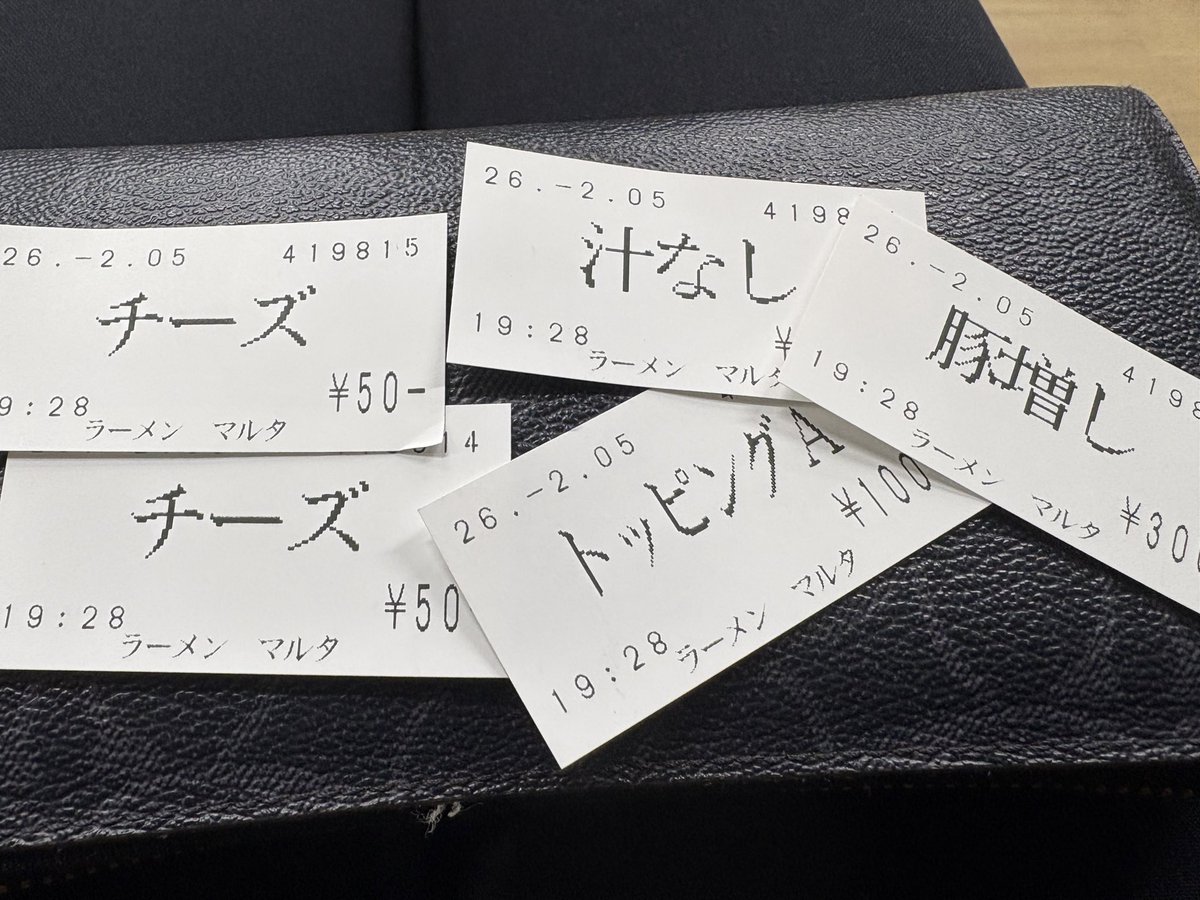 26.-2.05 419815
チーズ
9:28 ¥50-
ラーメン マルタ
14
チーズ
19:28 ¥50
ラーメン マルタ
26.-2.05 4198
汁なし
19:28 ¥
ラーメン マルタ
26.-2.05
トッピングA
¥100
19:28
ラーメン マルタ
26.-2.05 4198
豚増し
19:28
ラーメン マルタ
¥300